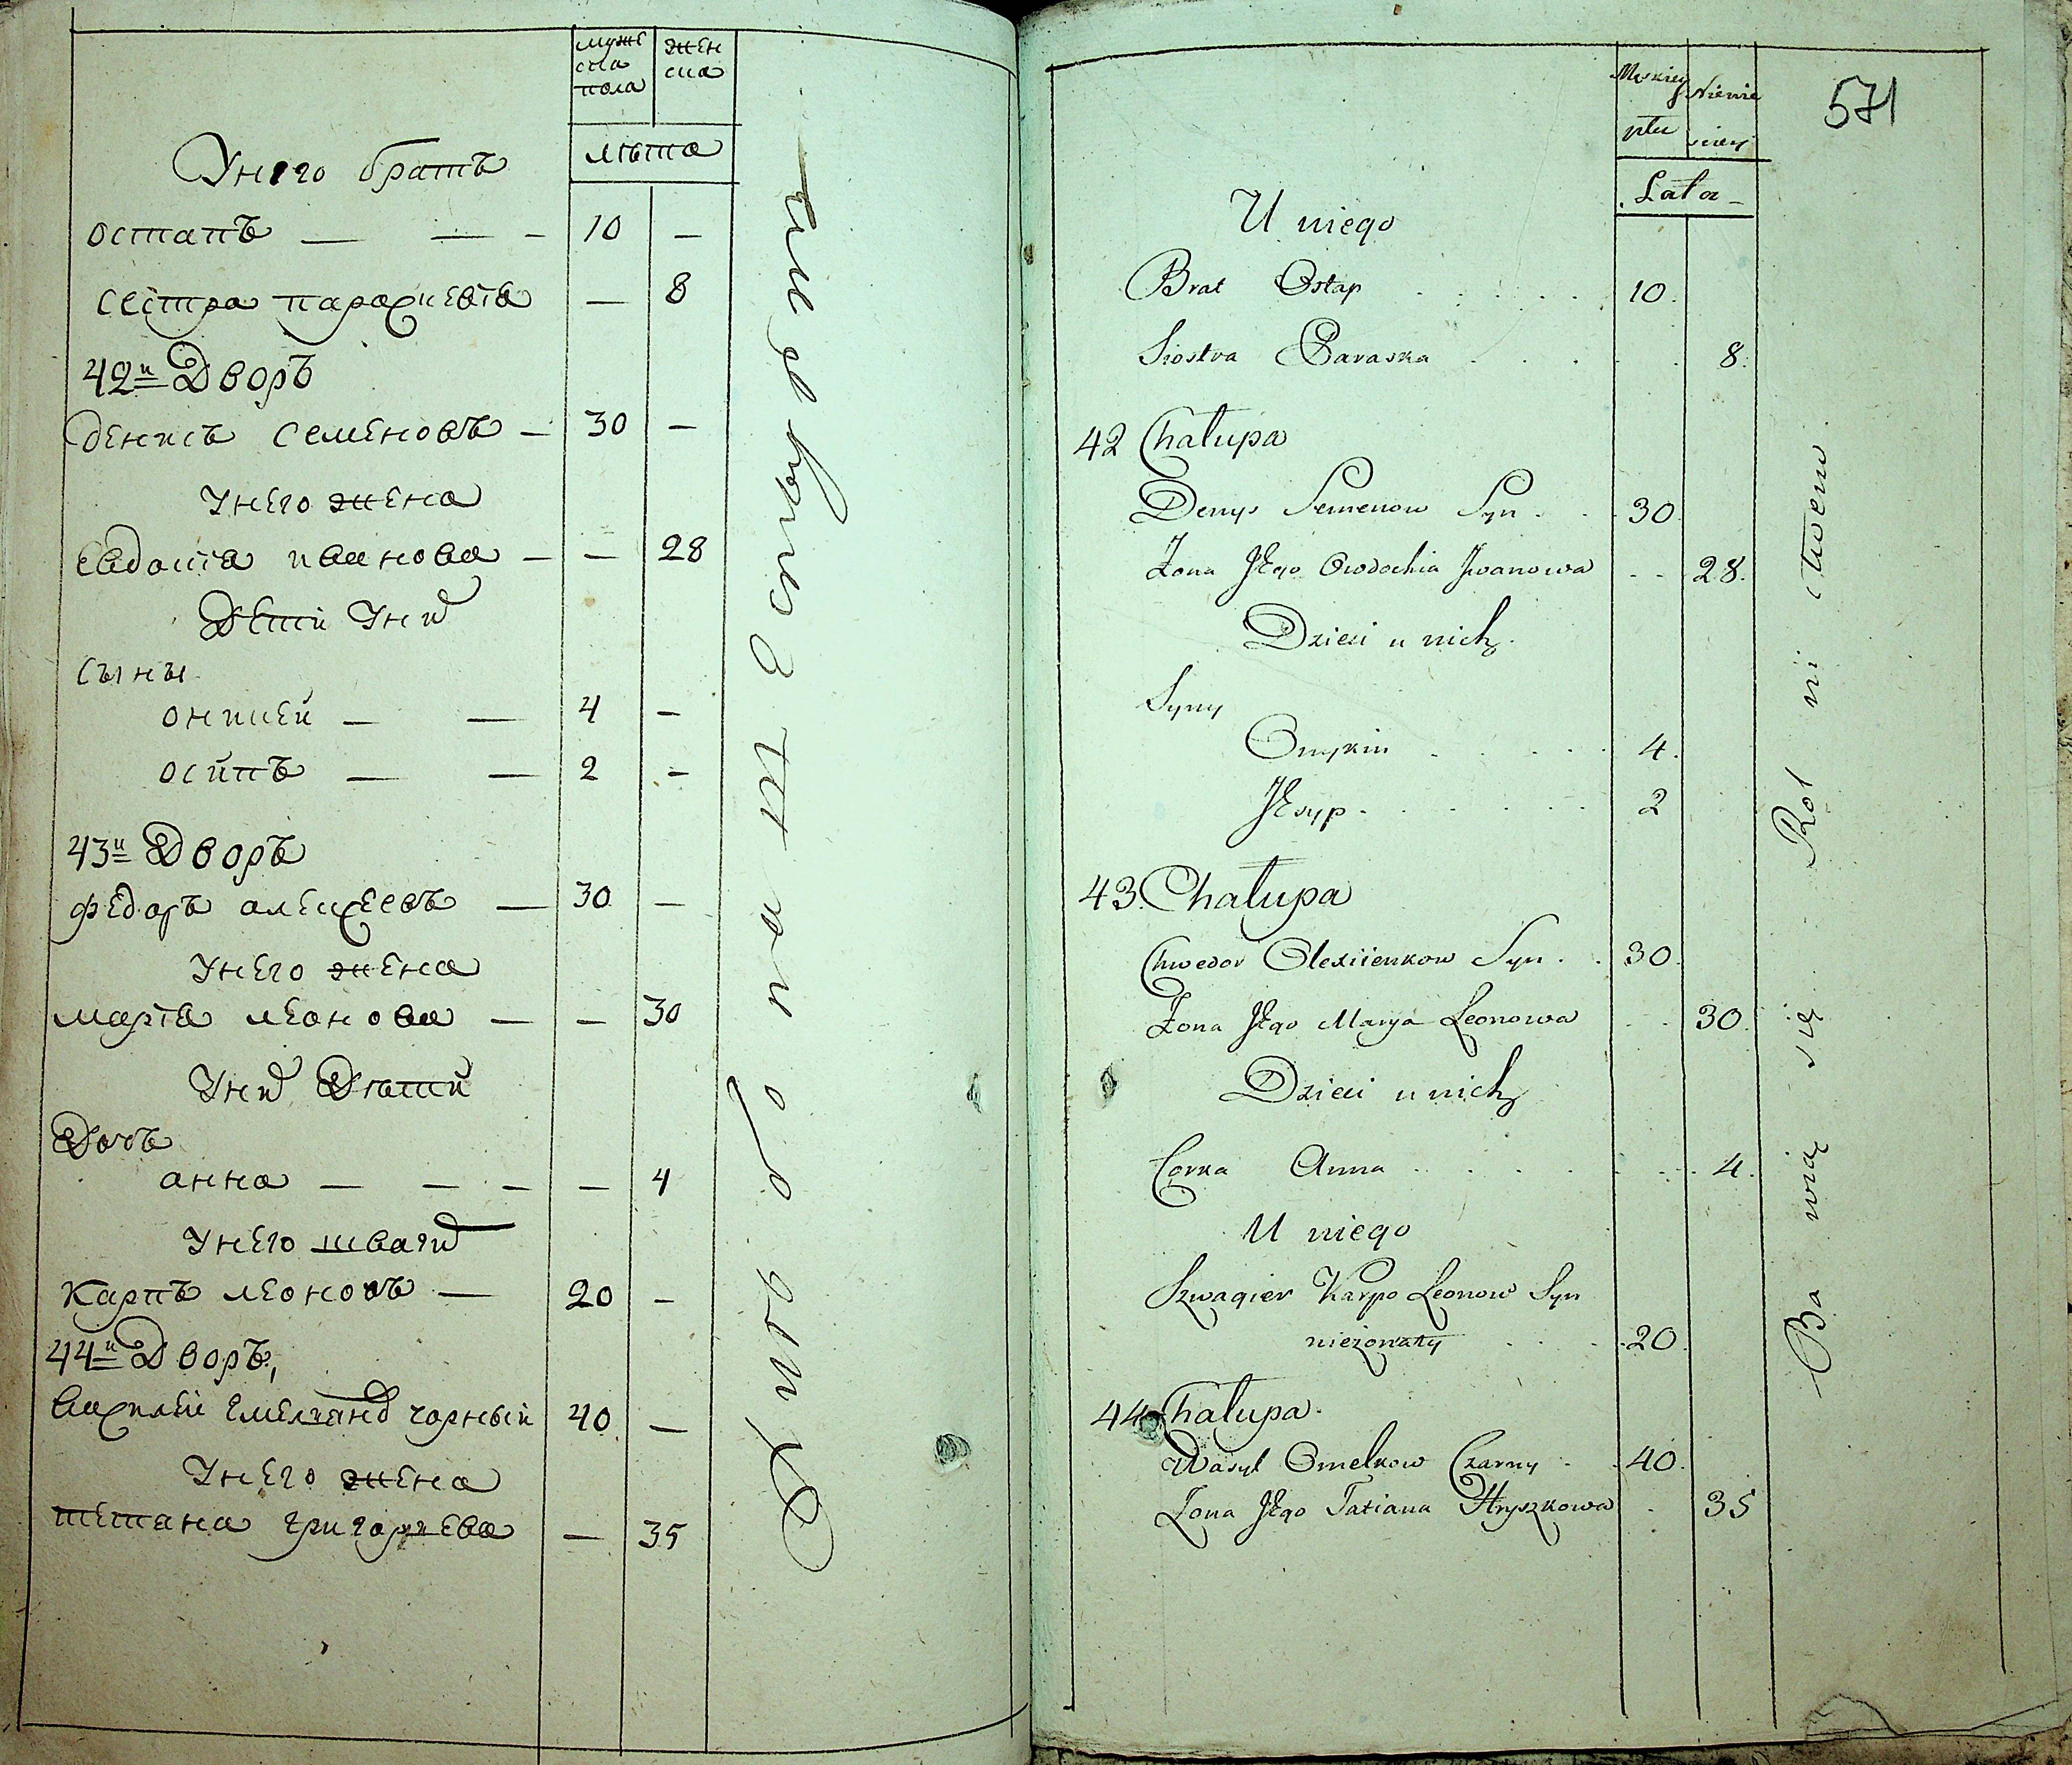 муже
ска
пола
женска
лѣта
У него братъ
остапъ — — - 10 —
сестра параскевія — 8
42й Дворъ
денисъ семеновъ — 30 —
У него жена
Евдокія иванова — — 28
Дети У них
сыны
оникей — — 4 —
осипъ — — 2 —
43й Дворъ
федоръ алексеевъ — 30 —
У него жена
марія леонова — — 30
У них Дѣти
Дочъ
анна — — — — 4
У него швагид
карпъ леоновъ — 20 —
44й Дворъ,
василей Емелянов чорный 40 —
У него жена
тетана григорьева — 35
571
Mezkiey płci
Niewiesciey
Lata
U niego
Brat Ostap . . . . . 10.
Siostra Paraska . . . . . 8.
42 Chałupa
Denys Semenow Syn . . 30.
Żona Jego Owdochia Jwanowa . . 28.
Dzieci u nich
Syny
Onykiii . . . . . 4.
Jesyp . . . . . . 2
43 Chałupa
Chwedor Olexiienkow Syn . . 30.
Żona Jego Marya Leonowa . . 30.
Dzieci u nich
Corka Anna . . . . . . 4.
U niego
Szwagier Karpo Leonow Syn
nieżonaty . . . 20.
44 Chałupa
Wasyl Omelkow Czarny . . 40.
Żona Jego Tatiana Hryszkowa . 35
Ba wią się Rol ni ctwem